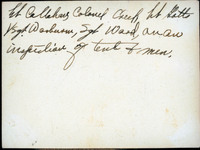 Lt Callahan, Colonel Cheef, Lt Gatts
Sgt Washburn, Sgt Wood, on an
inspection of tent & men.